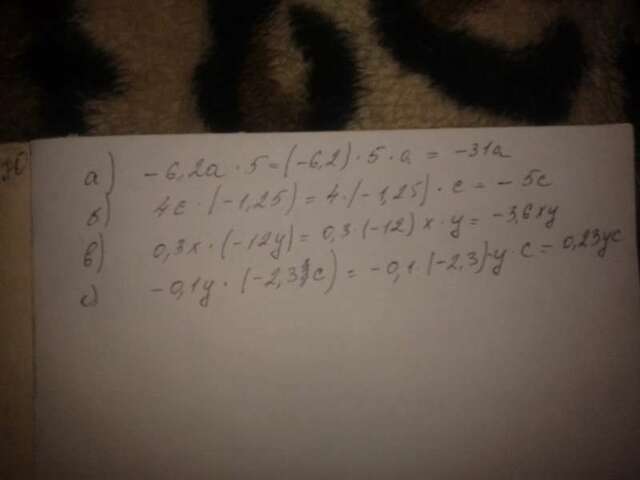 а) -6,2a · 5 = (-6,2) · 5 · a = -31a
б) 4c · (-1,25) = 4 · (-1,25) · c = -5c
в) 0,3x · (-12y) = 0,3 · (-12) x · y = -3,6xy
с) -0,1y · (-2,3c) = -0,1 · (-2,3) · y c = 0,23yc